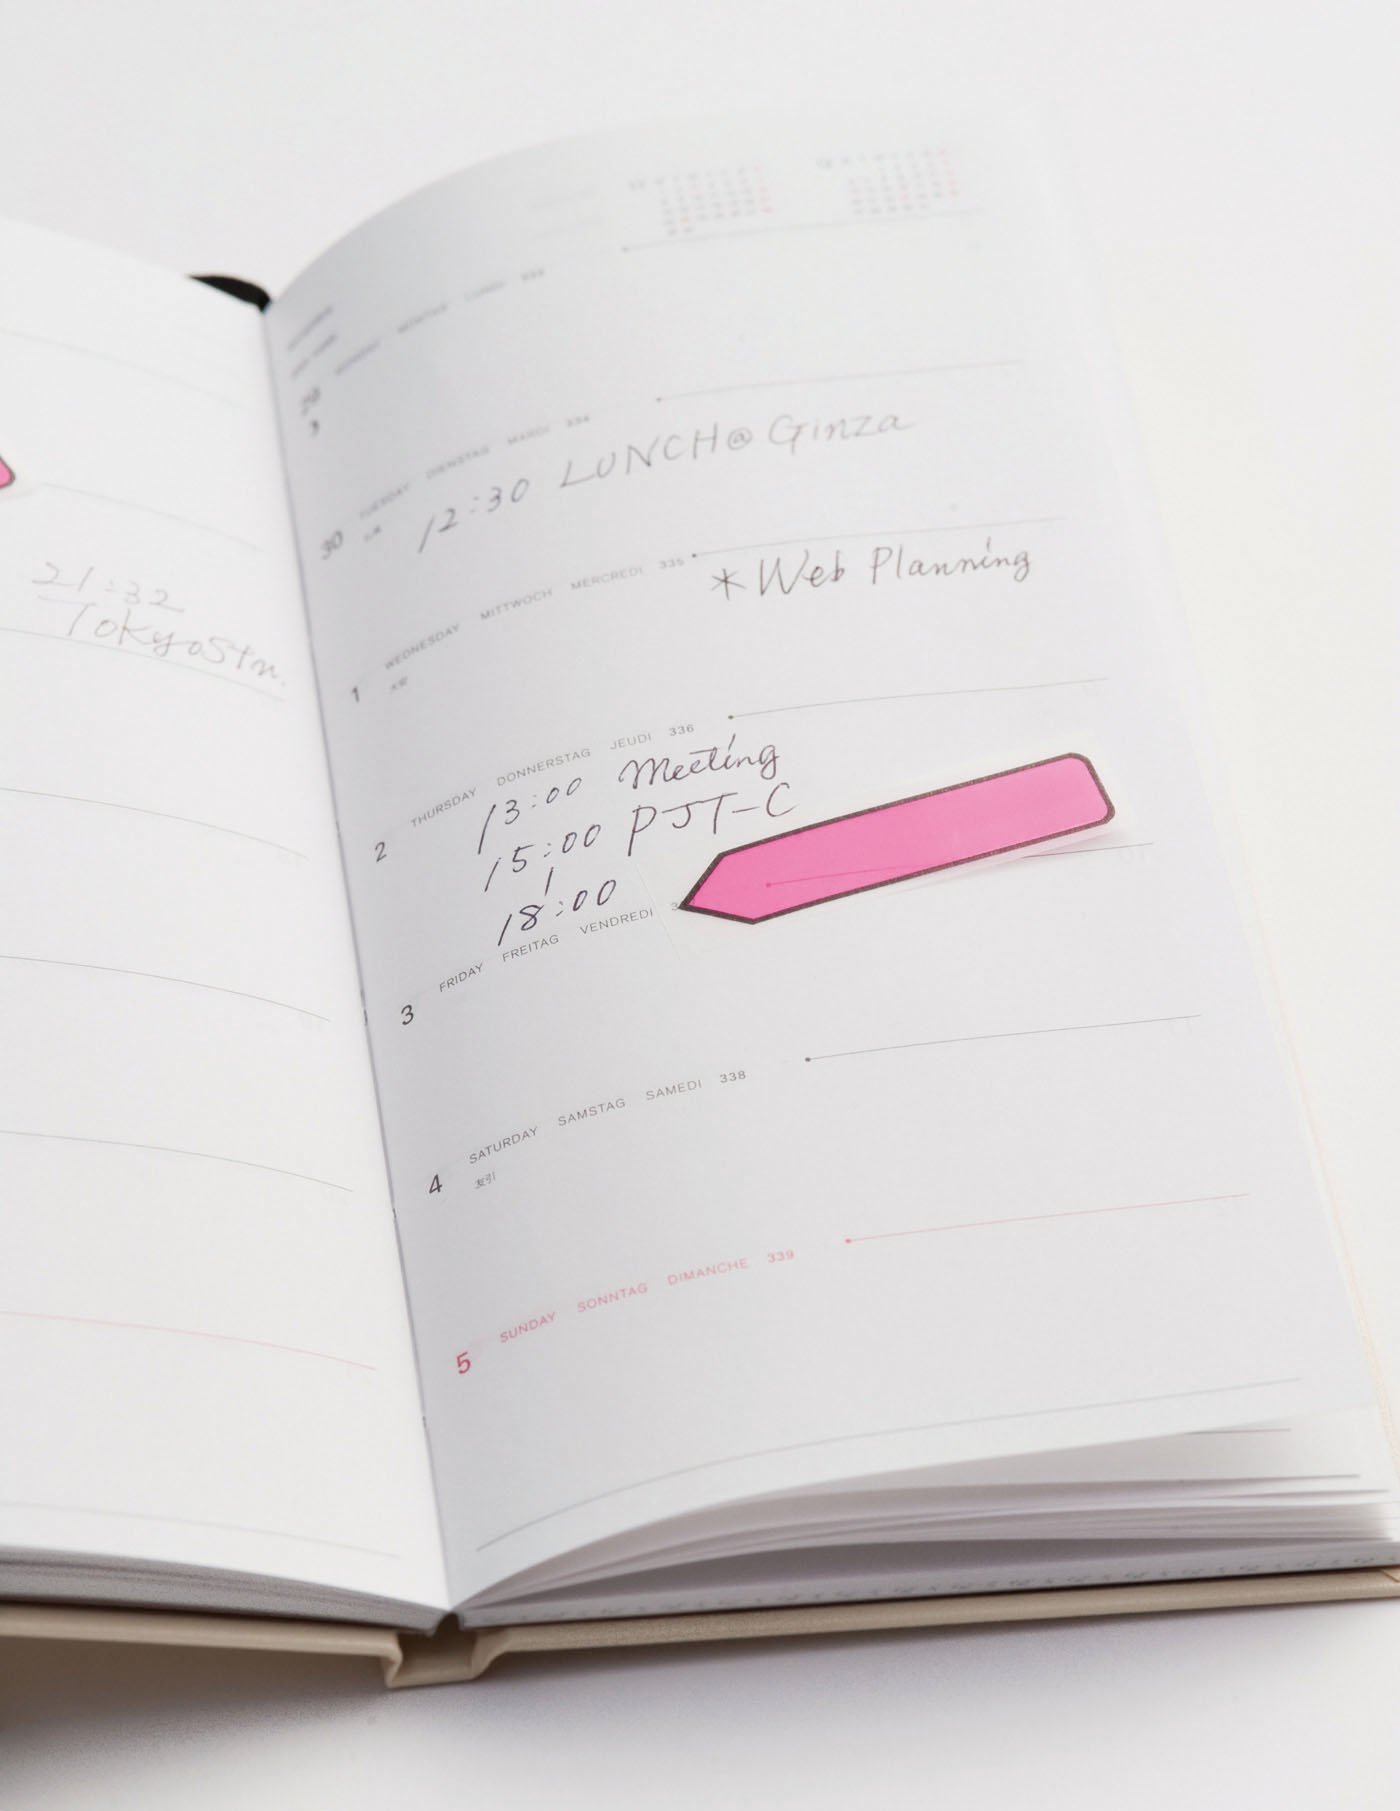 21:32
TokyoStn.
30 TUESDAY DIENSTAG MARDI 334
12:30 LUNCH@Ginza
1 WEDNESDAY MITTWOCH MERCREDI 335
*Web Planning
2 THURSDAY DONNERSTAG JEUDI 336
13:00 Meeting
15:00 PJT-C
18:00
3 FRIDAY FREITAG VENDREDI
4 SATURDAY SAMSTAG SAMEDI 338
友引
5 SUNDAY SONNTAG DIMANCHE 339